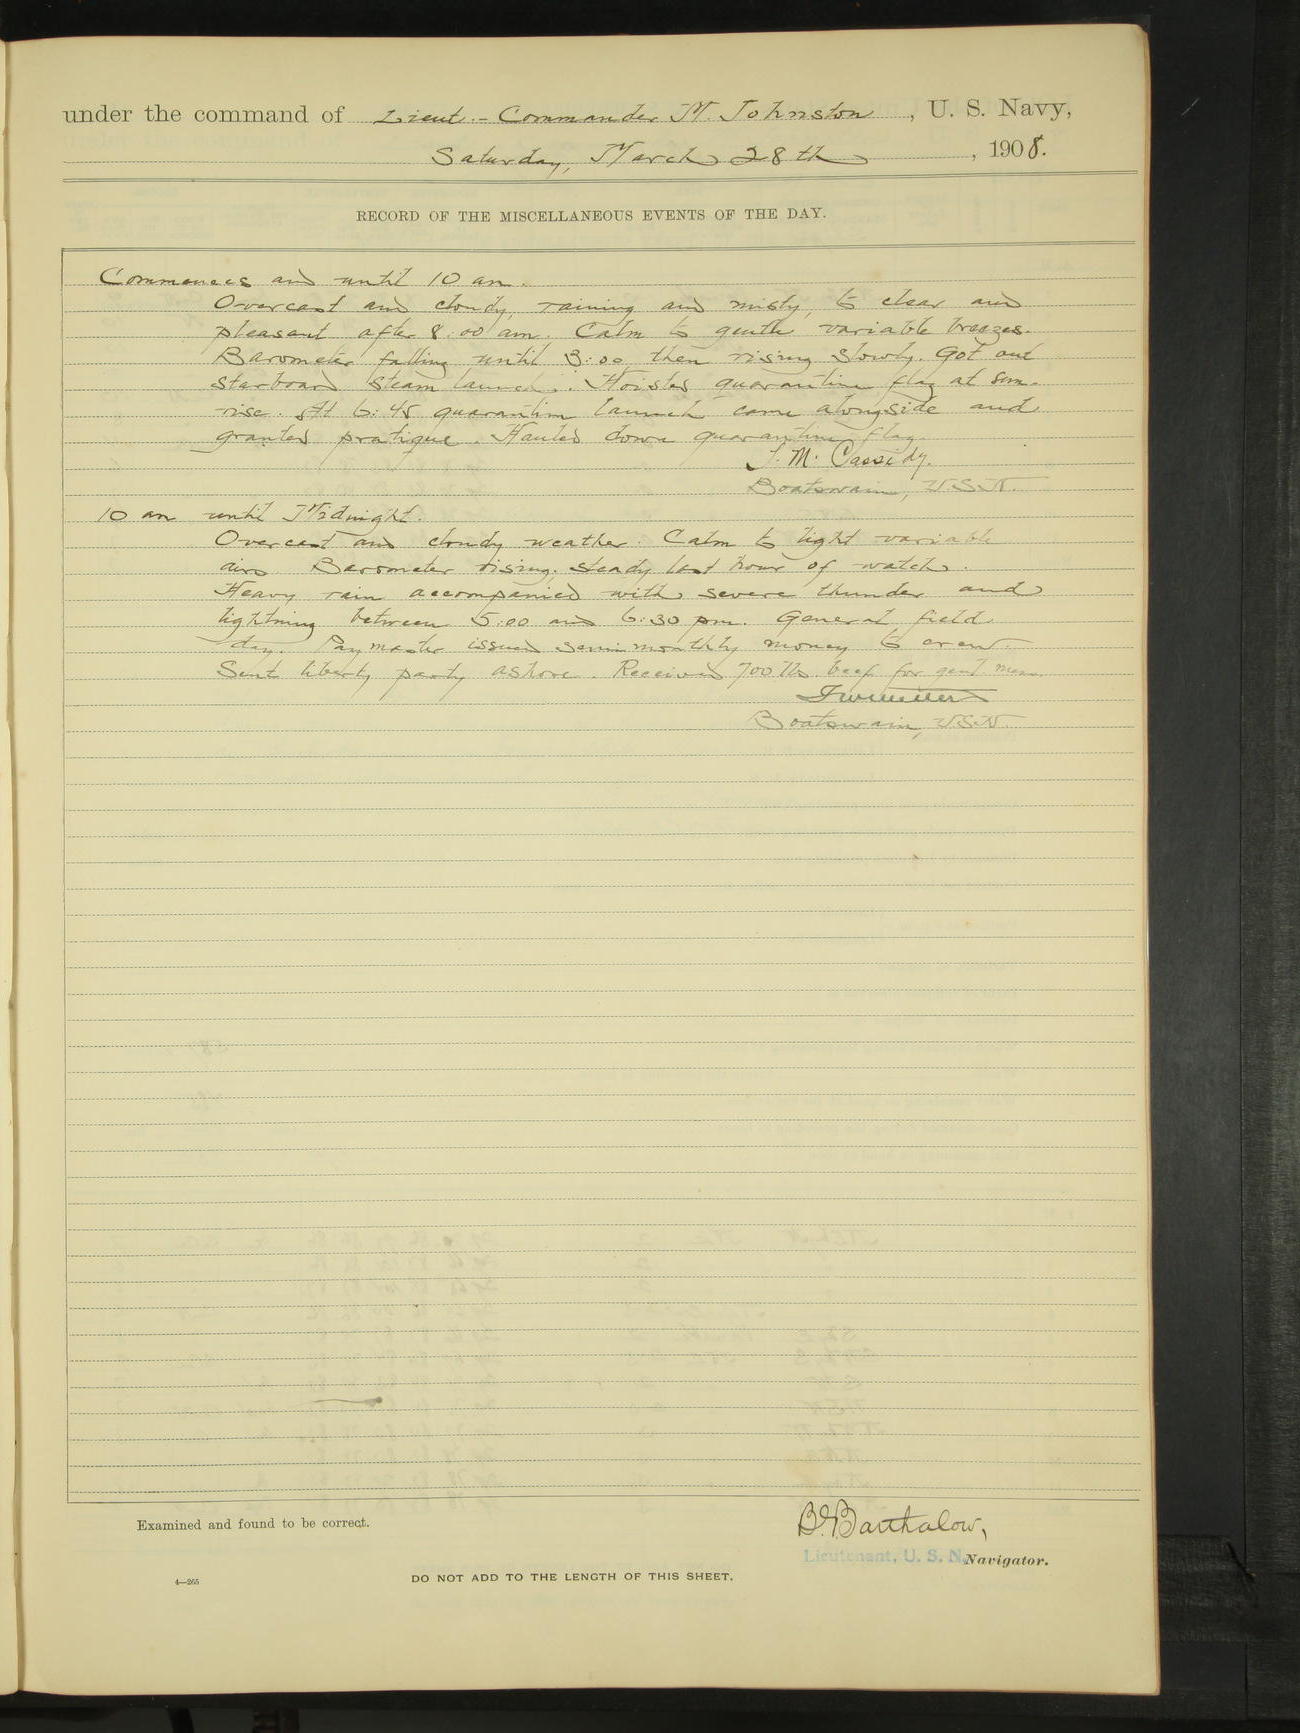 under the command of Lieut.-Commander M. Johnston, U. S. Navy,
Saturday, March 28th, 1908.
RECORD OF THE MISCELLANEOUS EVENTS OF THE DAY.
Commences and until 10 am.
Overcast and cloudy, raining and misty, to clear and
pleasant after 8:00 am. Calm to gentle variable breezes.
Barometer falling until 3:00 then rising slowly. Got out
starboard steam launch. Hoisted quarantine flag at sun-
rise. At 6:45 quarantine launch came alongside and
granted pratique. Hauled down quarantine flag.
J. M. Cassidy.
Boatswain, USN.
10 am until Midnight.
Overcast and cloudy weather. Calm to light variable
airs. Barometer rising, steady last hour of watch.
Heavy rain accompanied with severe thunder and
lightning between 5:00 and 6:30 pm. General field
day. Paymaster issued semimonthly money to crew.
Sent liberty party ashore. Received 700 lbs. beef for genl. mess.
Boatswain, USN.
Examined and found to be correct.
Barthalow,
Lieutenant, U. S. N. Navigator.
4—265
DO NOT ADD TO THE LENGTH OF THIS SHEET.